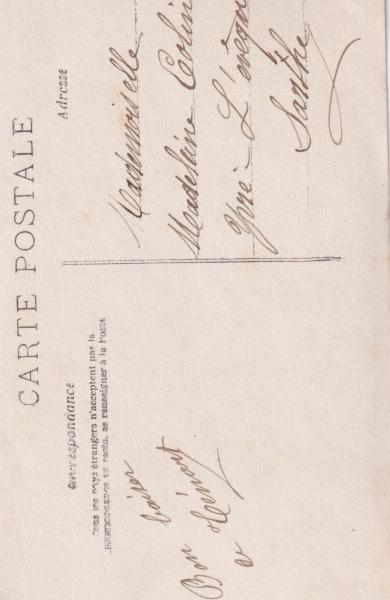 CARTE POSTALE
Correspondance
Tous les pays étrangers n'acceptent pas la
correspondance au recto, se renseigner à la Poste
Bon baiser
Adresse
Mademoiselle
Madeleine
Yvré-L'évêque
Sarthe